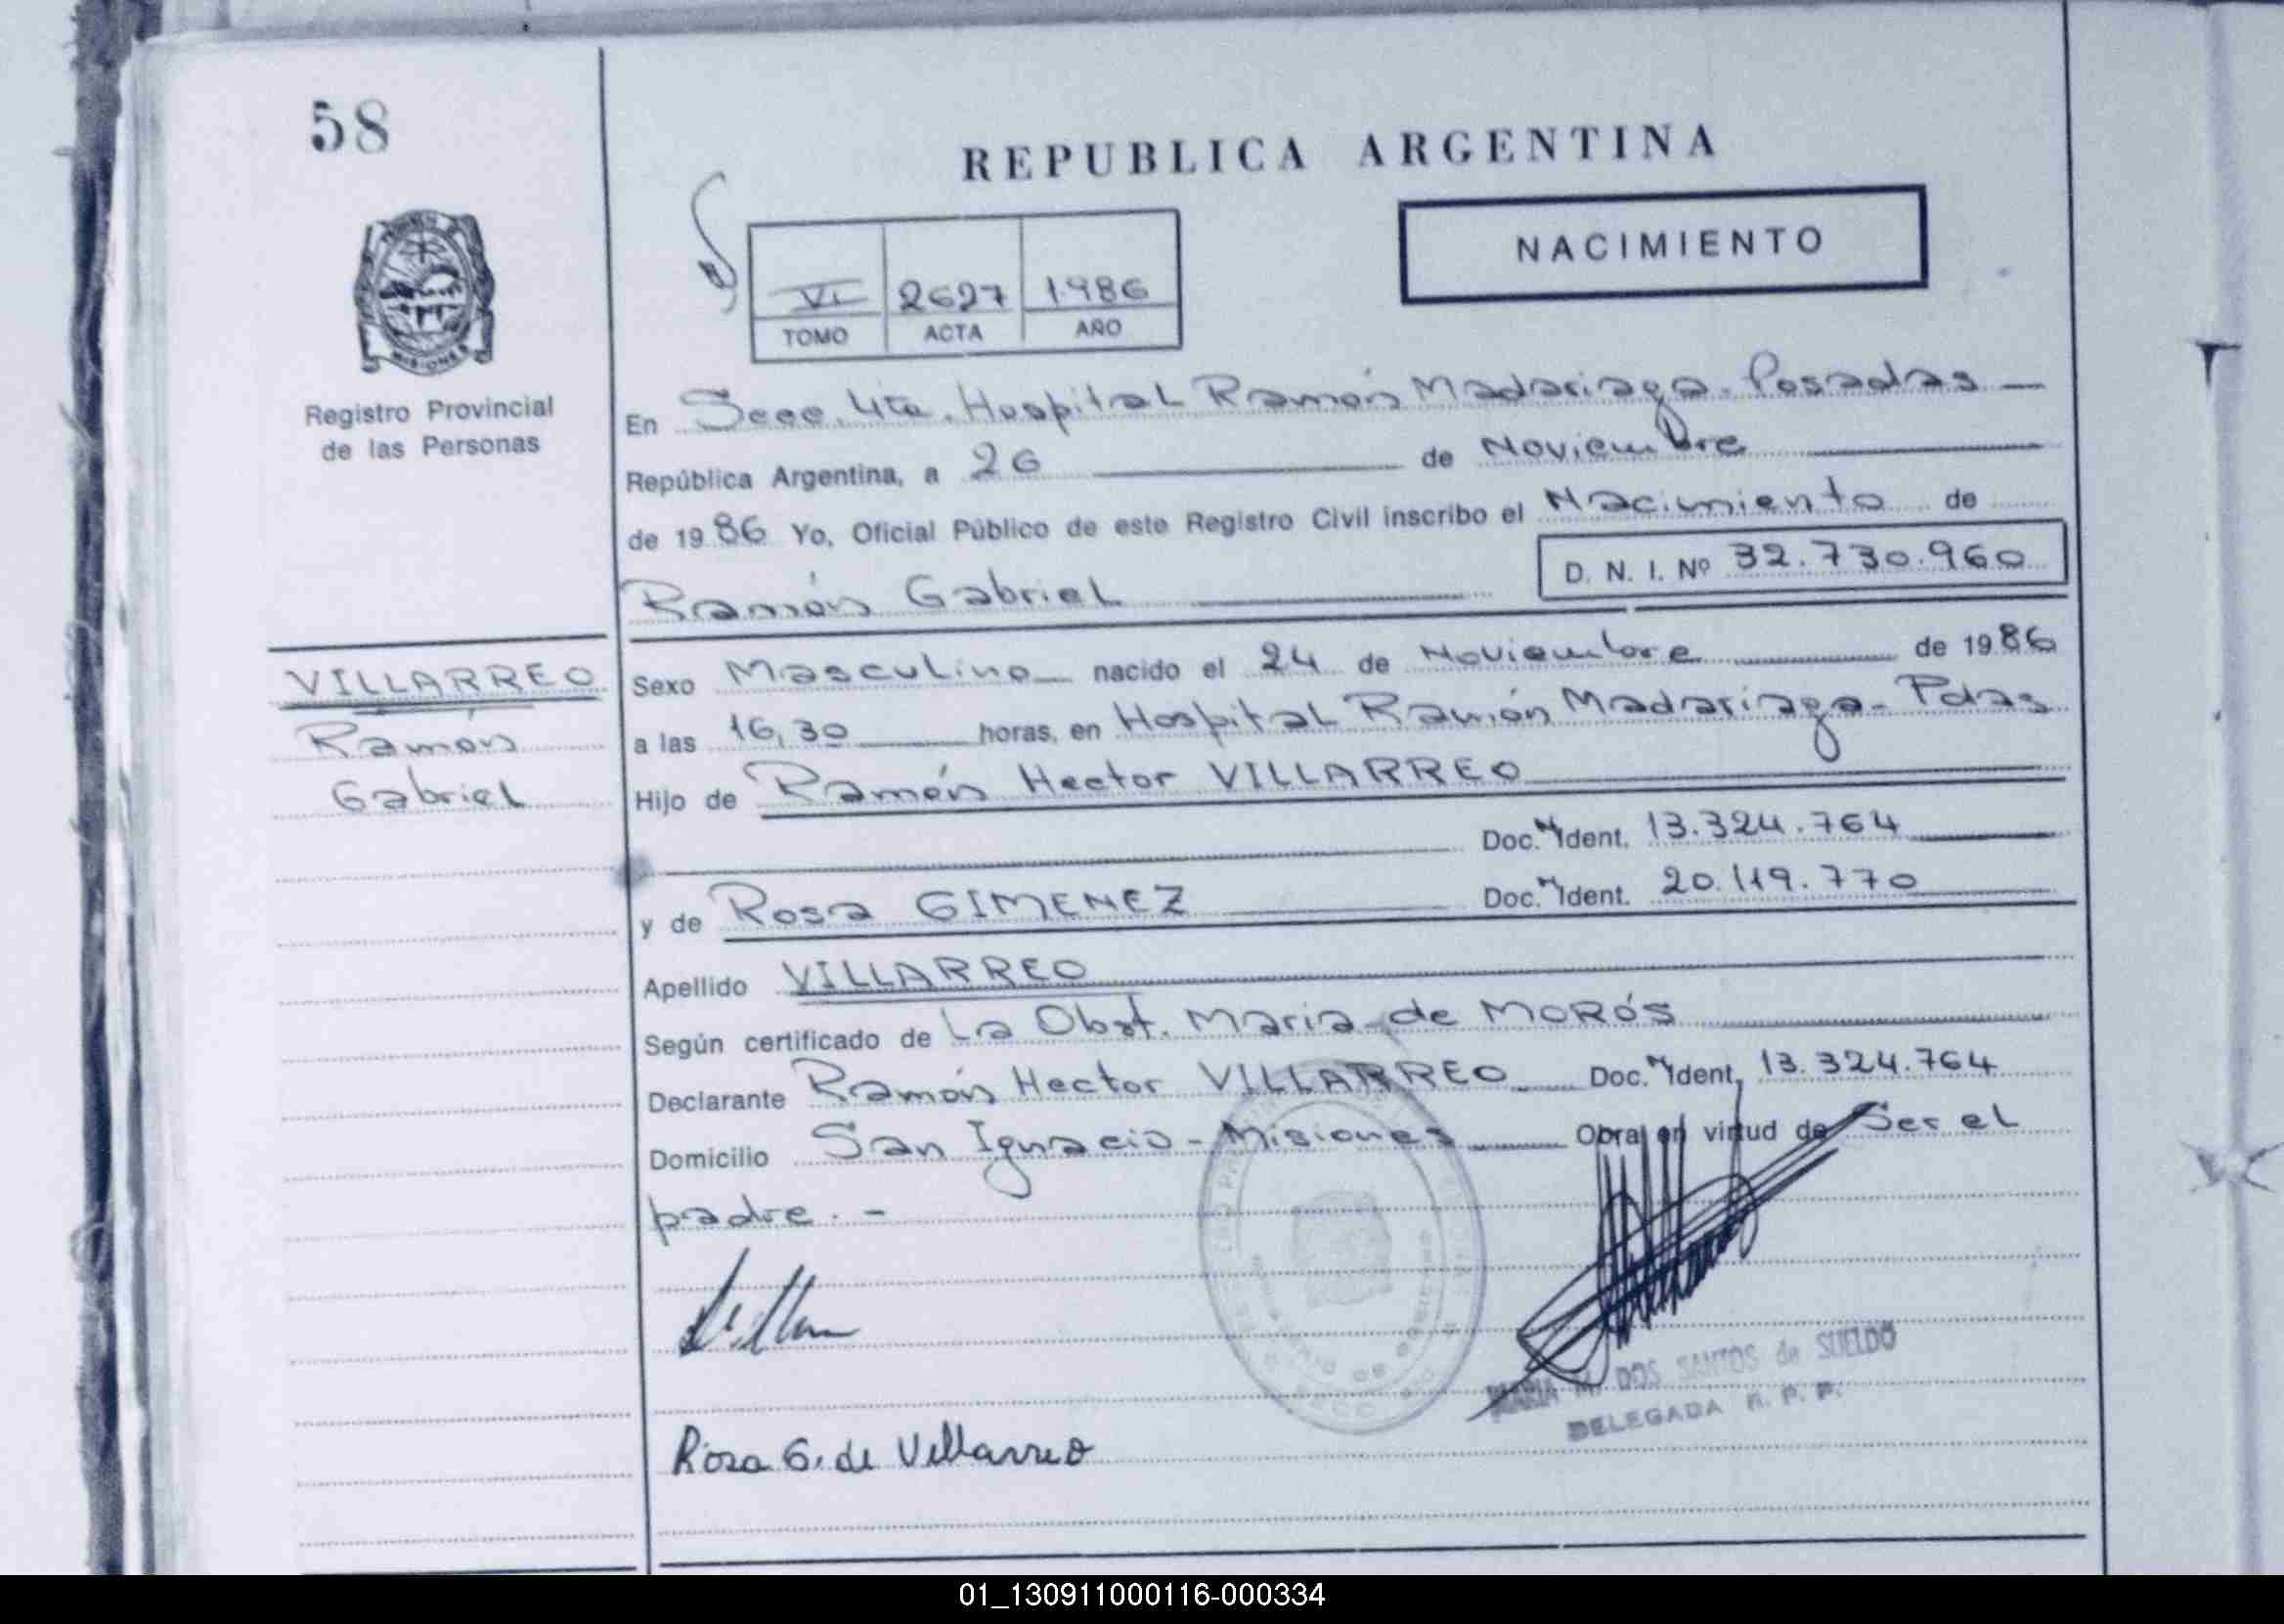 58
REPUBLICA ARGENTINA
NACIMIENTO
VI 2627 1986
TOMO ACTA AÑO
MISIONES
Registro Provincial
de las Personas
En Secc. 4ta. Hospital Ramón Madariaga - Posadas
República Argentina, a 26 de Noviembre
de 1986 Yo, Oficial Público de este Registro Civil inscribo el Nacimiento de
D. N. I. Nº 32.730.960
Ramón Gabriel
VILLARREO
Ramón
Gabriel
Sexo Masculino nacido el 24 de Noviembre de 1986
a las 16,30 horas, en Hospital Ramón Madariaga - Pdas
Hijo de Ramón Hector VILLARREO
Doc. Ident. 13.324.764
y de Rosa GIMENEZ Doc. Ident. 20.119.770
Apellido VILLARREO
Según certificado de La Obst. Maria de MORÓS
Declarante Ramón Hector VILLARREO Doc. Ident. 13.324.764
Domicilio San Ignacio - Misiones Obra en virtud de Ser el
padre. -
MARIA M. DOS SANTOS de SUELDO
DELEGADA R. P. P.
Rosa G. de Villarreo
01_130911000116-000334